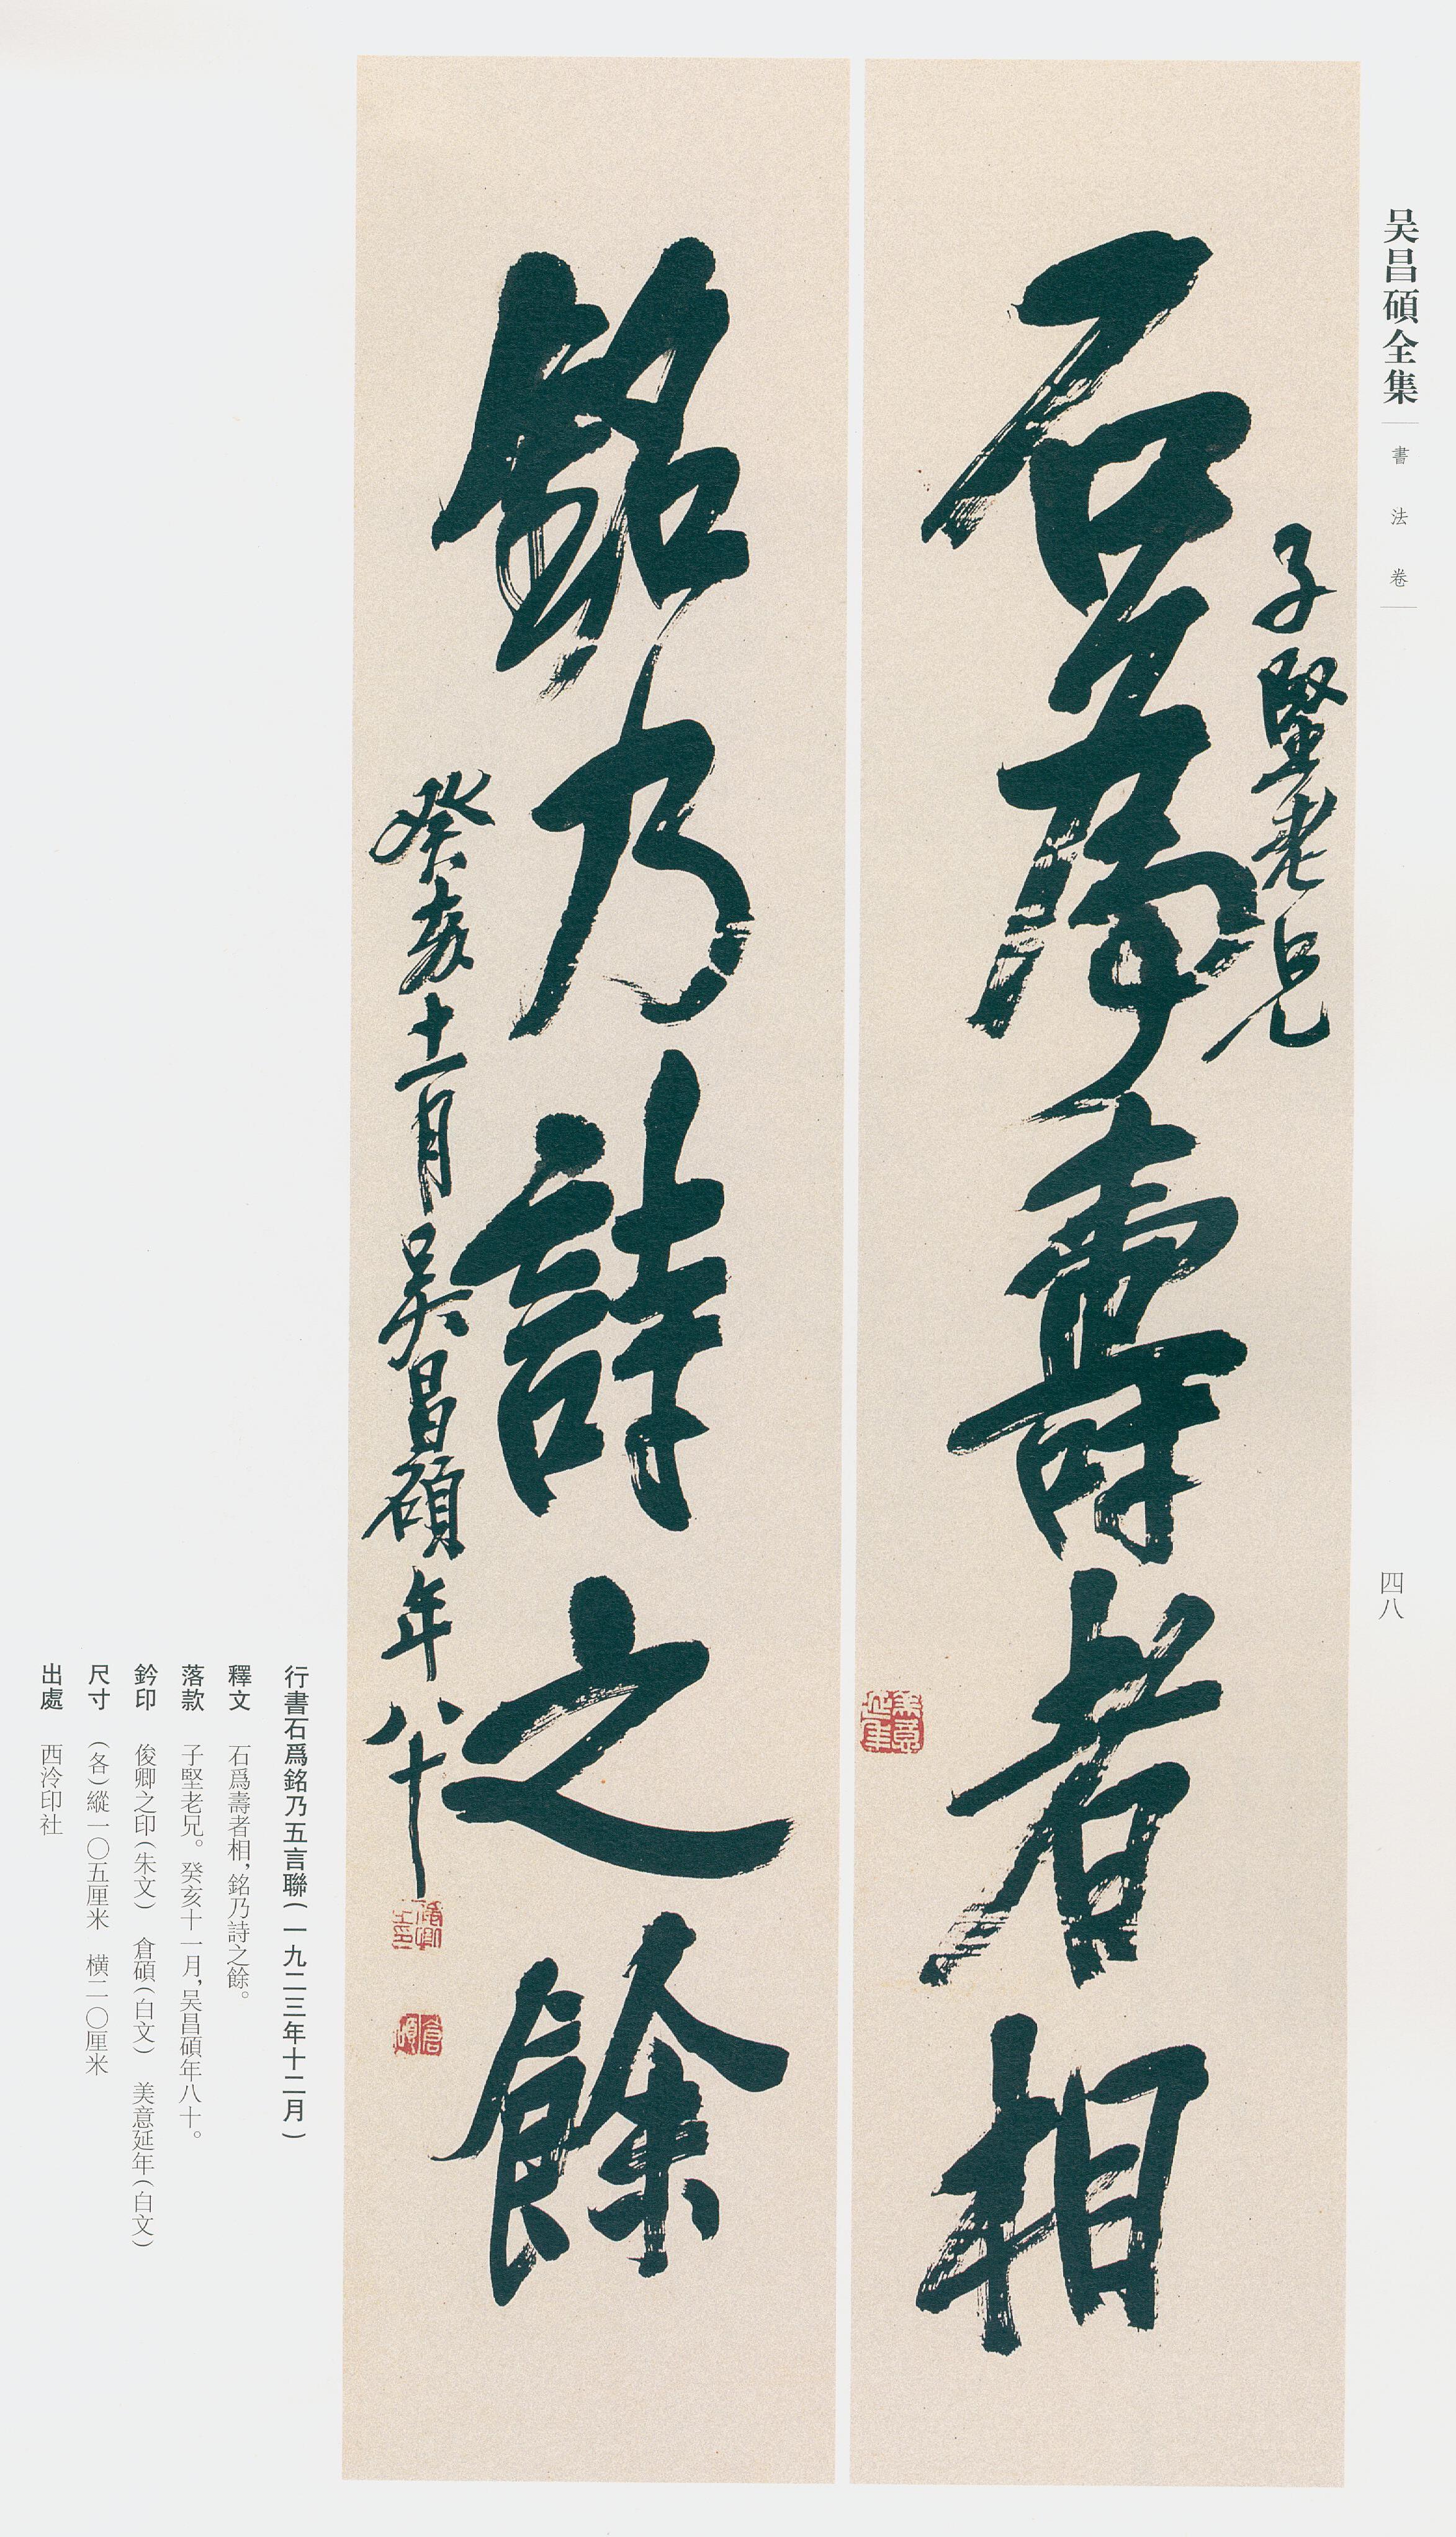 吴昌碩全集
書法卷
四八
子堅老兄
石爲壽者相
銘乃詩之餘
癸亥十一月吴昌碩年八十
美意延年
俊卿之印
倉碩
行書石爲銘乃五言聯（一九二三年十二月）
釋文　石爲壽者相，銘乃詩之餘。
落款　子堅老兄。癸亥十一月，吴昌碩年八十。
鈐印　俊卿之印（朱文）　倉碩（白文）　美意延年（白文）
尺寸　（各）縱一〇五厘米　橫二〇厘米
出處　西泠印社